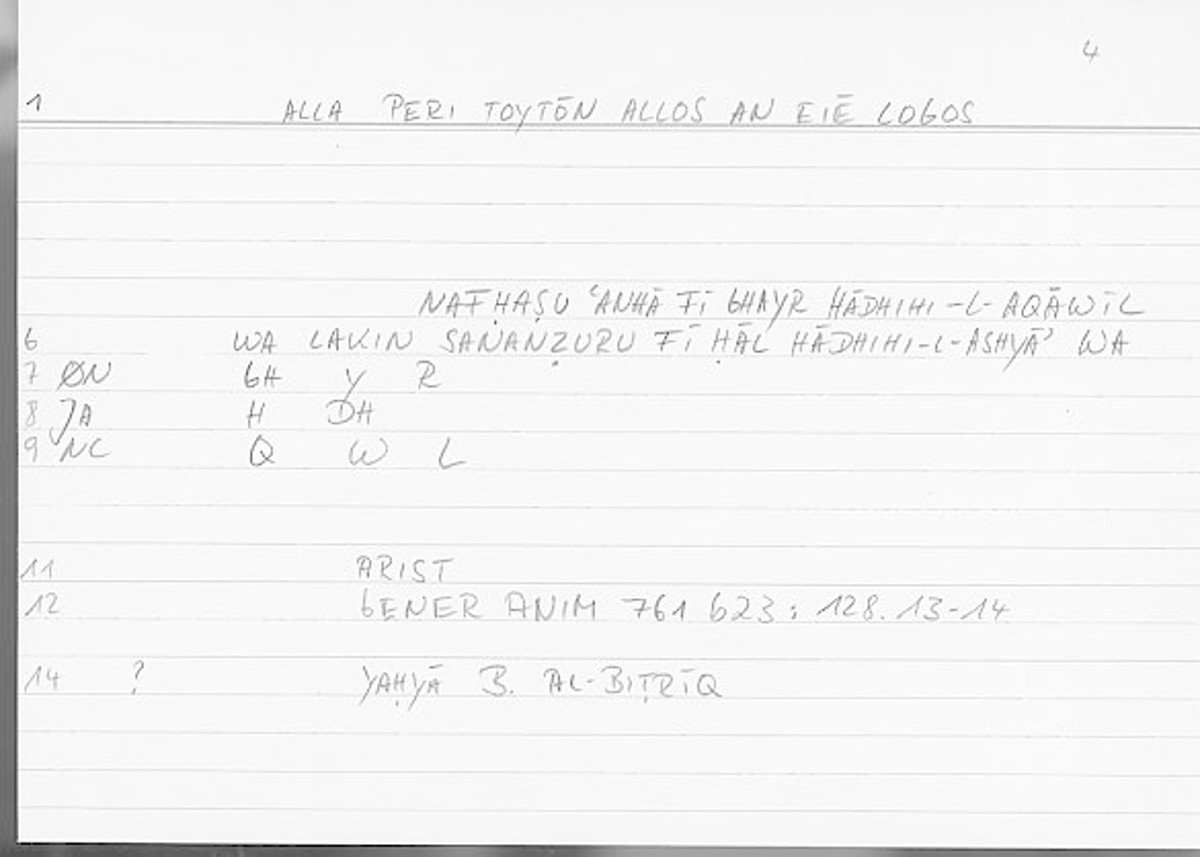 4
1 ALLA PERI TOYTŌN ALLOS AN EIĒ LOGOS
NAFḤAṢU ʿANHĀ FĪ GHAYR HĀDHIHI-L-AQĀWĪL
6 WA LAKIN SANANẒURU FĪ ḤĀL HĀDHIHI-L-ASHYĀʾ WA
7 ØN GH Y R
8 JA H DH
9 NC Q W L
11 ARIST
12 GENER ANIM 761 b23; 128.13-14
14 ? YAḤYĀ B. AL-BIṬRĪQ